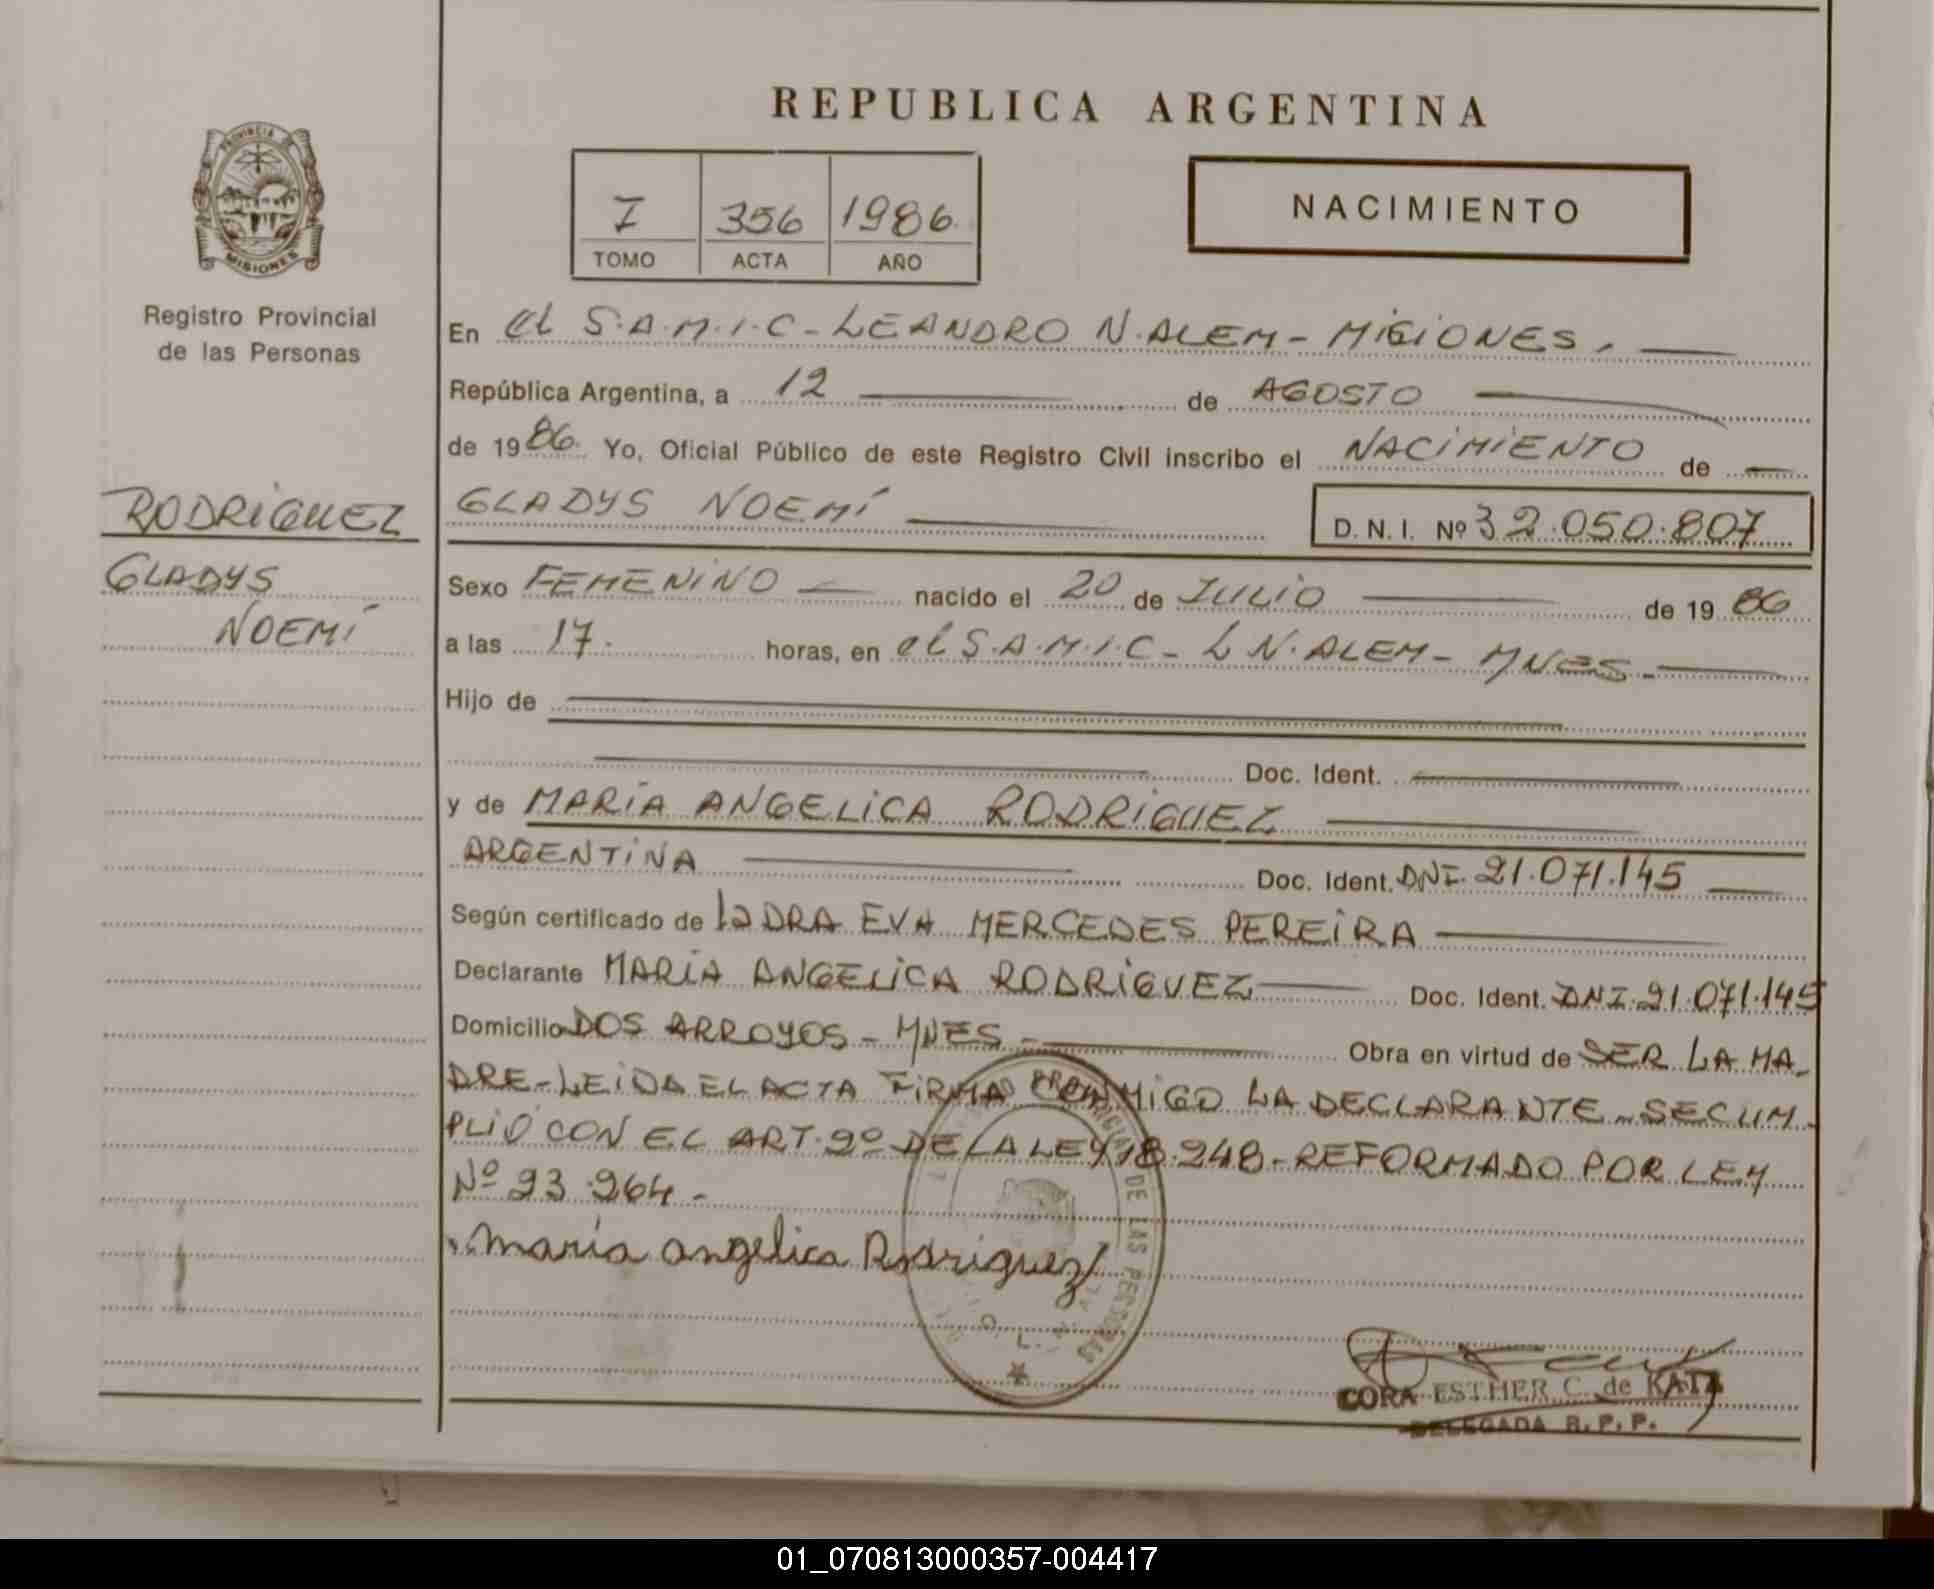 REPUBLICA ARGENTINA
PROVINCIA DE
MISIONES
Registro Provincial
de las Personas
I 356 1986
TOMO ACTA AÑO
NACIMIENTO
En el S.A.M.I.C - LEANDRO N. ALEM - MISIONES.
República Argentina, a 12 de AGOSTO
de 1986. Yo, Oficial Público de este Registro Civil inscribo el NACIMIENTO de
RODRIGUEZ
GLADYS
NOEMÍ
GLADYS NOEMÍ D.N.I. Nº 32.050.807
Sexo FEMENINO nacido el 20 de JULIO de 1986
a las 17. horas, en el S.A.M.I.C - L N. ALEM - MNES.
Hijo de
Doc. Ident.
y de MARÍA ANGELICA RODRIGUEZ
ARGENTINA Doc. Ident. DNI. 21.071.145
Según certificado de la DRA EVA MERCEDES PEREIRA
Declarante MARÍA ANGELICA RODRIGUEZ Doc. Ident. DNI. 21.071.145
Domicilio DOS ARROYOS - MNES - Obra en virtud de SER LA MA-
DRE - LEIDA EL ACTA FIRMA CONMIGO LA DECLARANTE - SE CUM-
PLIÓ CON EL ART. 2º DE LA LEY 18.248 - REFORMADO POR LEY
Nº 23.264 -
María angelica Rodriguez
DE LAS PERSONAS
CORA ESTHER C. de KATZ
DELEGADA R.P.P.
01_070813000357-004417